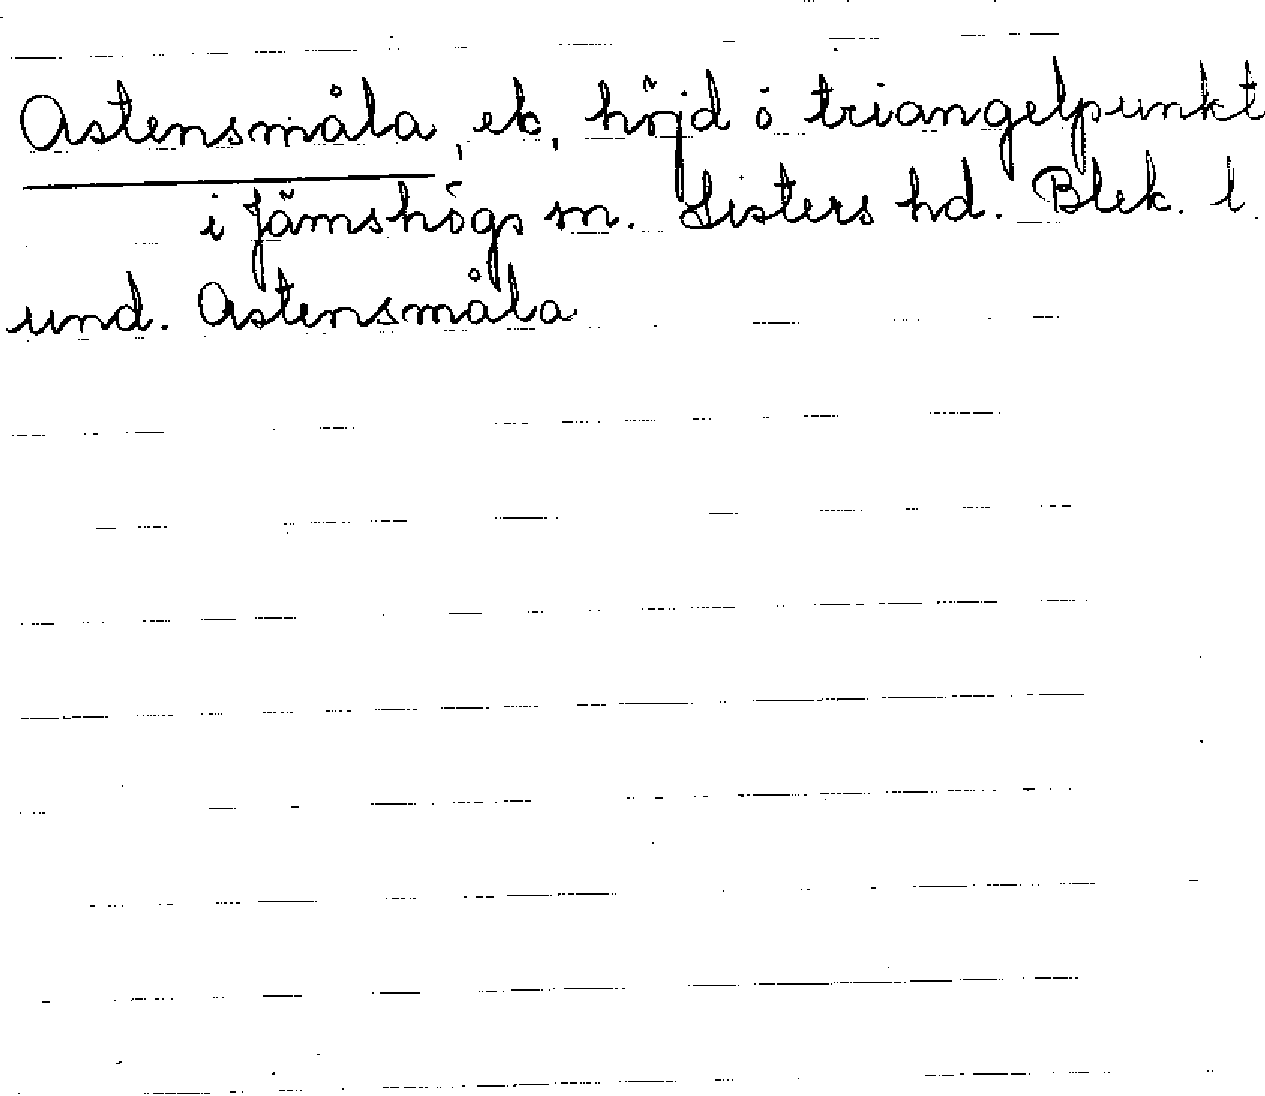 Astensmåla, ek, höjd ö triangelpunkt
i Jämshögs sn. Listers hd. Blek. l.
und. Astensmåla